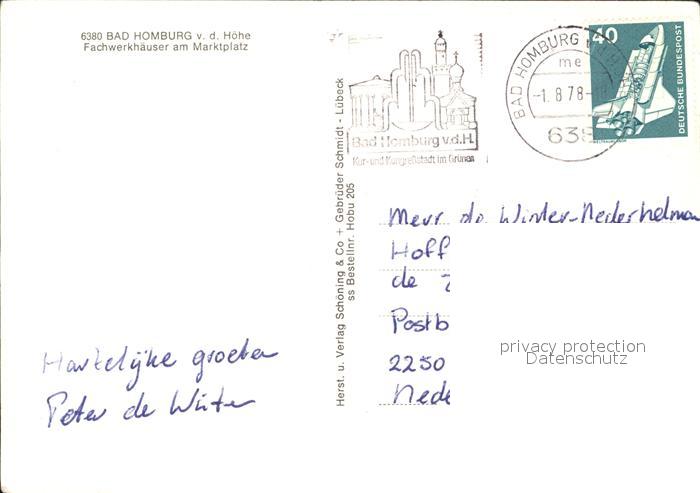 6380 BAD HOMBURG v. d. Höhe
Fachwerkhäuser am Marktplatz
Bad Homburg v.d.H.
Kur- und Kongreßstadt im Grünen
BAD HOMBURG v
me
-1.8.78-
638
40
DEUTSCHE BUNDESPOST
Herst. u. Verlag Schöning & Co + Gebrüder Schmidt - Lübeck
ss Bestellnr. Hobu 205
Mevr. de Winter-Nederhelman
Hoff
de
Postb
2250
Nede
privacy protection
Datenschutz
Hartelijke groeten
Peter de Winter